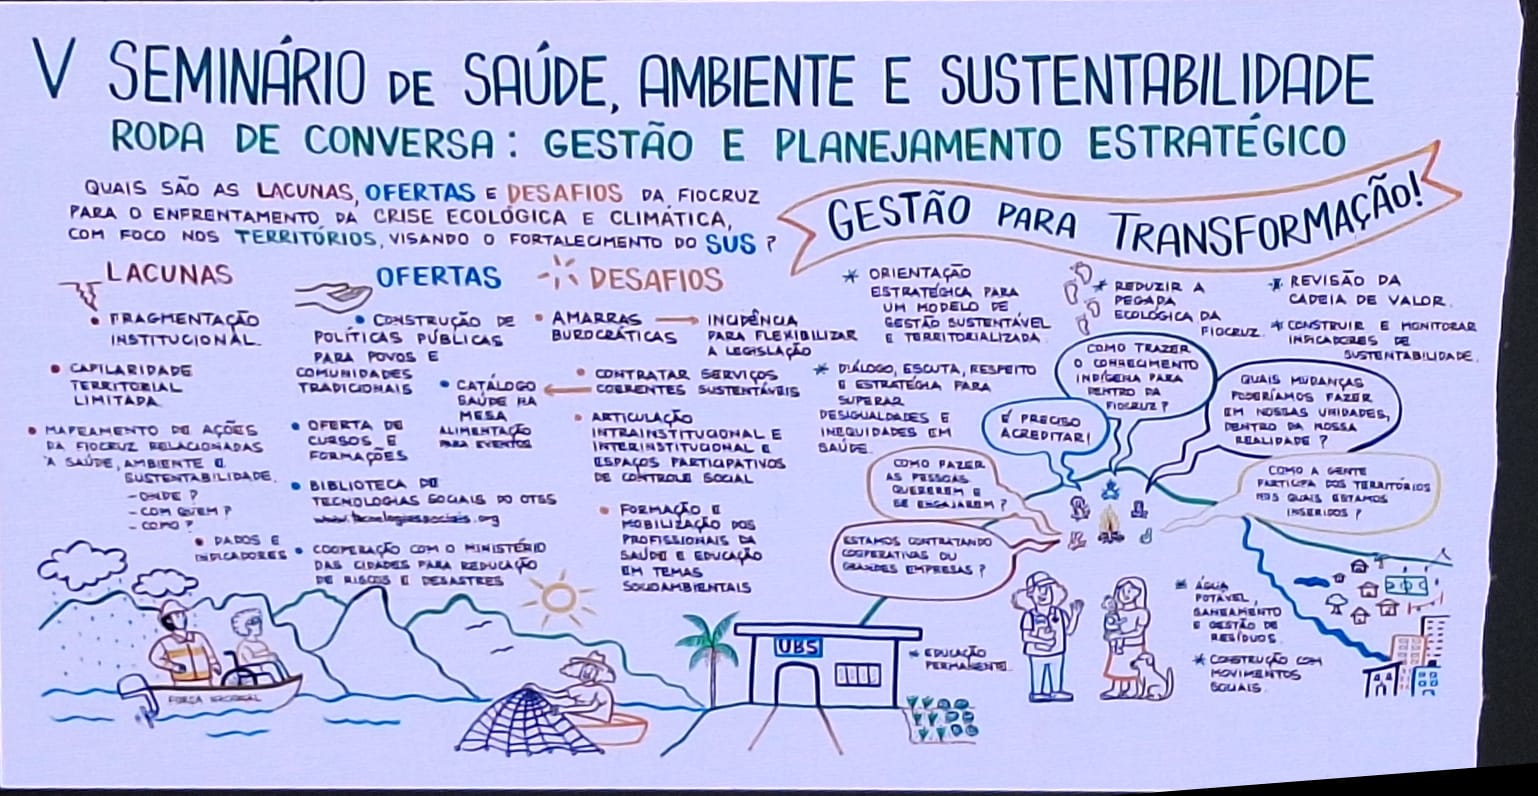 V SEMINÁRIO DE SAÚDE, AMBIENTE E SUSTENTABILIDADE
RODA DE CONVERSA: GESTÃO E PLANEJAMENTO ESTRATÉGICO
QUAIS SÃO AS LACUNAS, OFERTAS E DESAFIOS DA FIOCRUZ
PARA O ENFRENTAMENTO DA CRISE ECOLÓGICA E CLIMÁTICA,
COM FOCO NOS TERRITÓRIOS, VISANDO O FORTALECIMENTO DO SUS?
GESTÃO PARA TRANSFORMAÇÃO!
LACUNAS
• FRAGMENTAÇÃO
INSTITUCIONAL.
• CAPILARIDADE
TERRITORIAL
LIMITADA.
• MAPEAMENTO DE AÇÕES
DA FIOCRUZ RELACIONADAS
À SAÚDE, AMBIENTE E
SUSTENTABILIDADE.
- ONDE?
- COM QUEM?
- COMO?
• DADOS E
INDICADORES
OFERTAS
• CONSTRUÇÃO DE
POLÍTICAS PÚBLICAS
PARA POVOS E
COMUNIDADES
TRADICIONAIS
• CATÁLOGO
SAÚDE NA
MESA
ALIMENTAÇÃO
PARA EVENTOS
• OFERTA DE
CURSOS E
FORMAÇÕES
• BIBLIOTECA DE
TECNOLOGIAS SOCIAIS DO OTSS
www.tecnologiassociais.org
• COOPERAÇÃO COM O MINISTÉRIO
DAS CIDADES PARA REDUÇÃO
DE RISCOS E DESASTRES
DESAFIOS
• AMARRAS
BUROCRÁTICAS
INCIDÊNCIA
PARA FLEXIBILIZAR
A LEGISLAÇÃO
• CONTRATAR SERVIÇOS
COERENTES SUSTENTÁVEIS
• ARTICULAÇÃO
INTRAINSTITUCIONAL E
INTERINSTITUCIONAL E
ESPAÇOS PARTICIPATIVOS
DE CONTROLE SOCIAL
• FORMAÇÃO E
MOBILIZAÇÃO DOS
PROFISSIONAIS DA
SAÚDE E EDUCAÇÃO
EM TEMAS
SOCIOAMBIENTAIS
* ORIENTAÇÃO
ESTRATÉGICA PARA
UM MODELO DE
GESTÃO SUSTENTÁVEL
E TERRITORIALIZADA.
* DIÁLOGO, ESCUTA, RESPEITO
E ESTRATÉGIA PARA
SUPERAR
DESIGUALDADES E
INEQUIDADES EM
SAÚDE.
* REDUZIR A
PEGADA
ECOLÓGICA DA
FIOCRUZ.
* REVISÃO DA
CADEIA DE VALOR.
* CONSTRUIR E MONITORAR
INDICADORES DE
SUSTENTABILIDADE.
COMO TRAZER
O CONHECIMENTO
INDÍGENA PARA
DENTRO DA
FIOCRUZ?
É PRECISO
ACREDITAR!
QUAIS MUDANÇAS
PODERÍAMOS FAZER
EM NOSSAS UNIDADES,
DENTRO DA NOSSA
REALIDADE?
COMO FAZER
AS PESSOAS
QUEREREM E
SE ENGAJAREM?
COMO A GENTE
PARTICIPA DOS TERRITÓRIOS
NOS QUAIS ESTAMOS
INSERIDOS?
ESTAMOS CONTRATANDO
COOPERATIVAS OU
GRANDES EMPRESAS?
* ÁGUA
POTÁVEL,
SANEAMENTO
E GESTÃO DE
RESÍDUOS.
* CONSTRUÇÃO COM
MOVIMENTOS
SOCIAIS.
* EDUCAÇÃO
PERMANENTE.
UBS
FORÇA NACIONAL